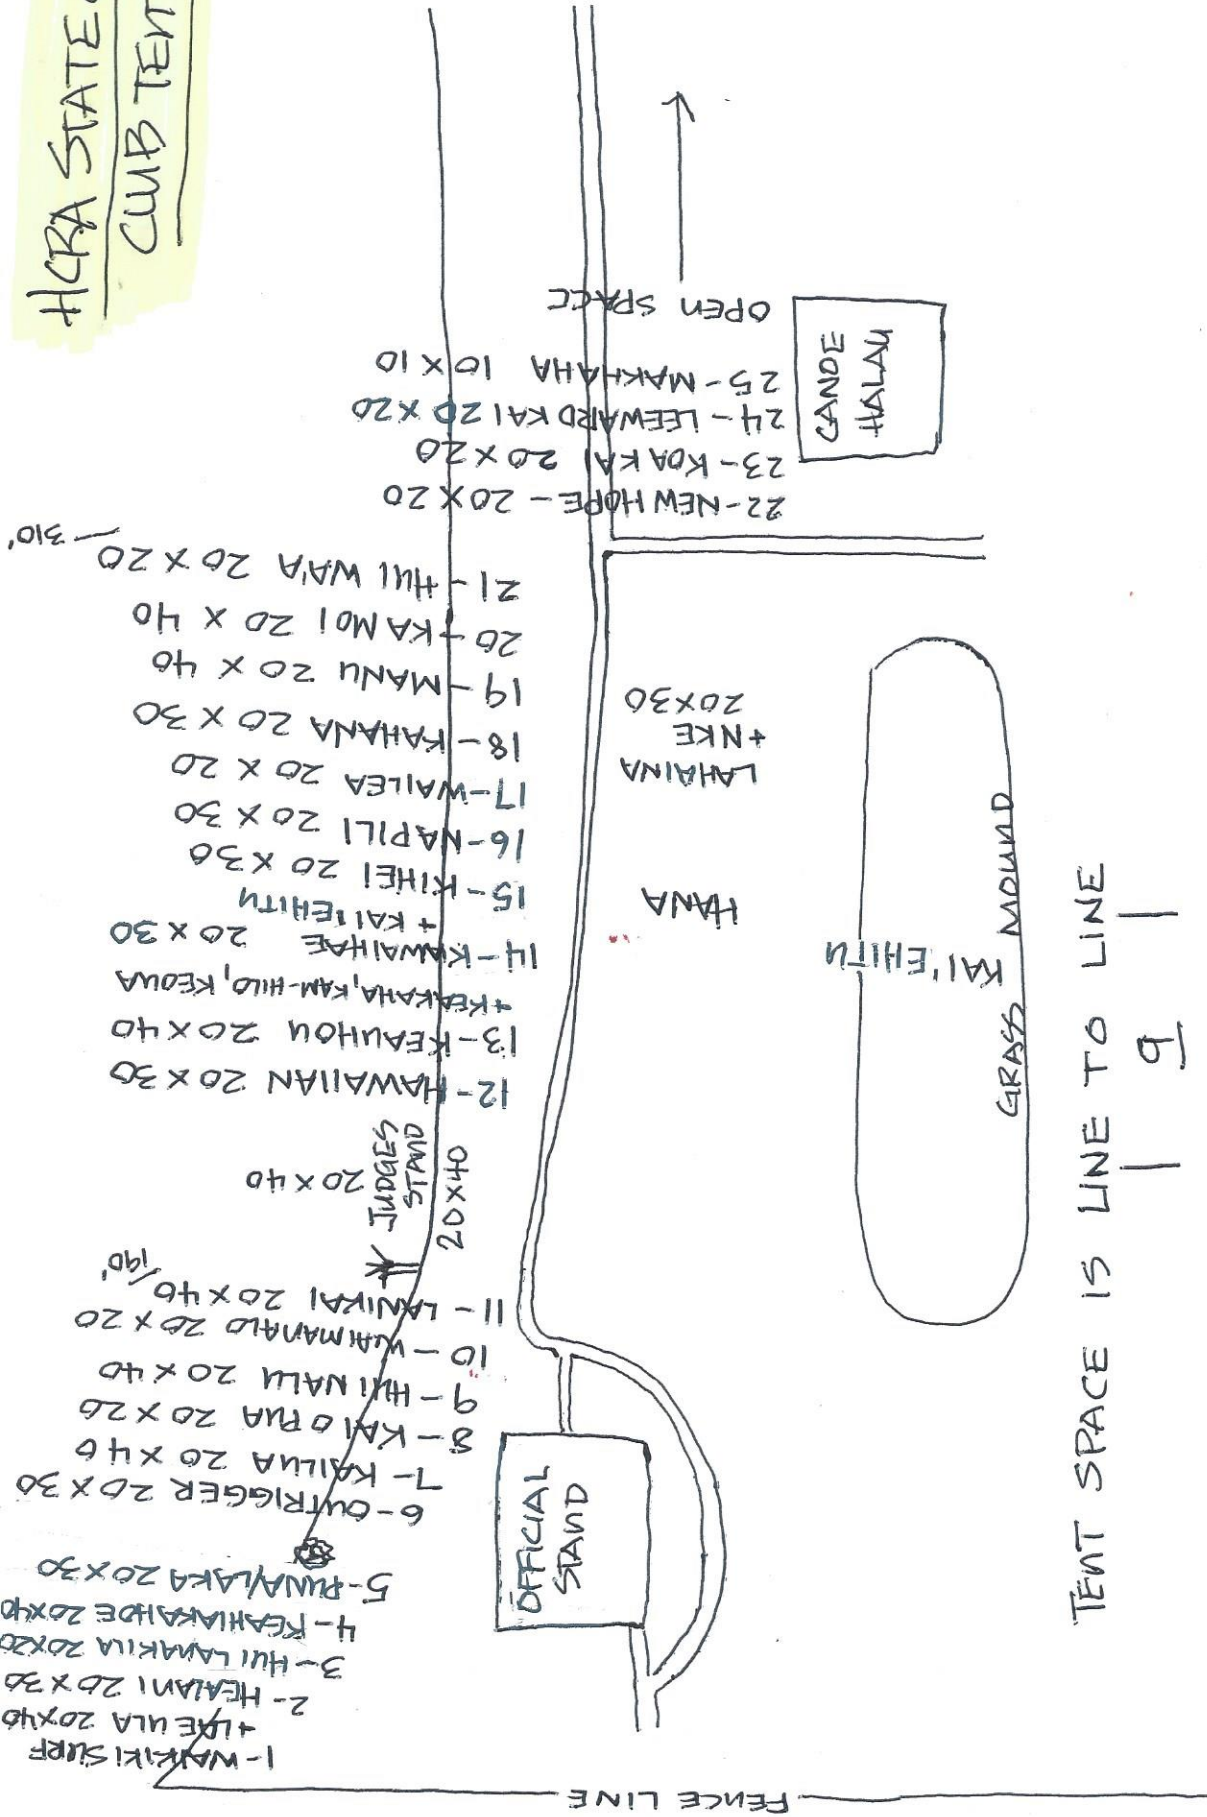 HCRA STATE
CLUB TENT
1-WAIKIKI SURF
+LAE ULA 20X40
2-HEALANI 20X30
3-HUI LANAKILA 20X20
4-KEAHIAKAHOE 20X40
5-PUNA/LAKA 20X30
6-OUTRIGGER 20X30
7-KAILUA 20X40
8-KAI OPUA 20X20
9-HUI NALU 20X40
10-WAIMANALO 20X20
11-LANIKAI 20X40
190'
JUDGES
STAND
20X40
20X40
12-HAWAIIAN 20X30
13-KEAUHOU 20X40
+KEAKAHA, KAM-HILO, KEOUA
14-KAWAIHAE 20X30
+KAI'EHITU
15-KIHEI 20X30
16-NAPILI 20X30
17-WAILEA 20X20
18-KAHANA 20X30
19-MANU 20X40
20-KAMOI 20X40
21-HUI WA'A 20X20
310'
22-NEW HOPE-20X20
23-KOA KAI 20X20
24-LEEWARD KAI 20X20
25-MAKHAHA 10X10
OPEN SPACE
CANOE
HALAU
LAHAINA
+NKE
20X30
HANA
KAI'EHITU
GRASS MOUND
OFFICIAL
STAND
FENCE LINE
TENT SPACE IS LINE TO LINE
| 9 |